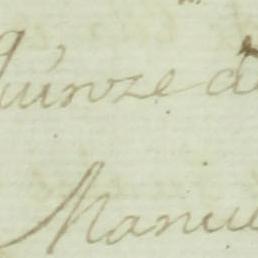 quinze d
Manu